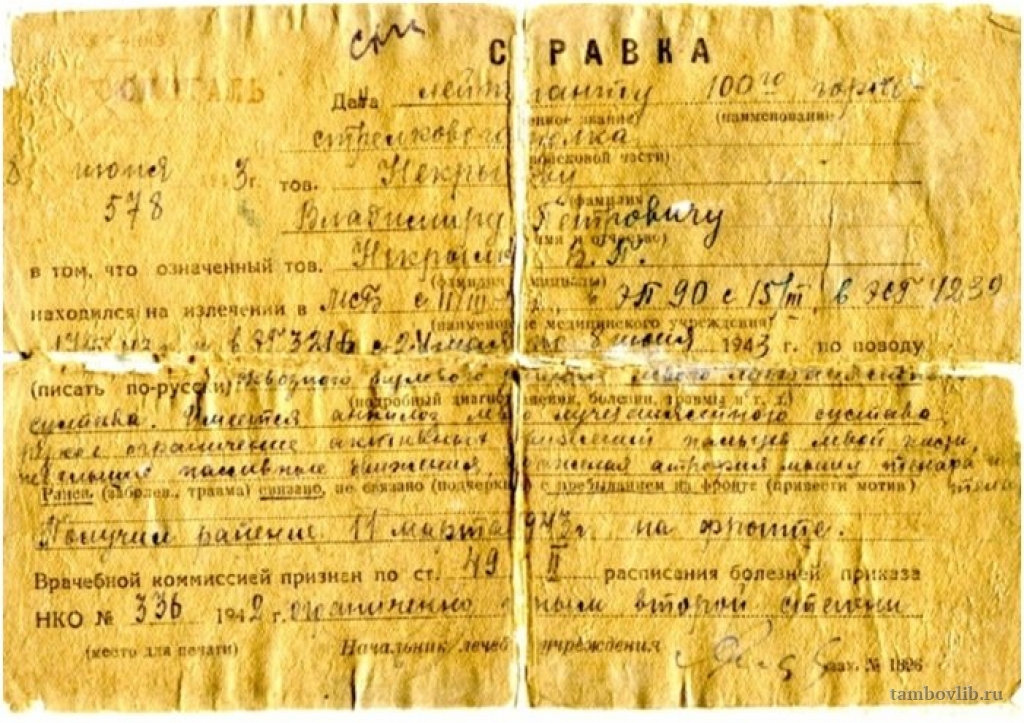 СПРАВКА
Дана лейтенанту 100го горно-
(наименование
стрелкового полка
войсковой части)
8 июня 3 г. тов. Некрылову
578
(фамилия
Владимиру Петровичу
имя и отчество)
в том, что означенный тов. Некрылов В. П.
(фамилия
находился на излечении в МСБ с 11/III в ЭП 90 с 15/III, в ЭГ 4239
(наименование медицинского учреждения)
и в ЭГ 3216 с 24 8 июня 1943 г. по поводу
(писать по-русски) сквозного пулевого ранения левого
(подробный диагноз ранения, болезни, травмы и т. д.)
сустава. Имеется анкилоз левого лучезапястного сустава,
резкое ограничение активных движений пальцев левой кисти,
пассивные движения, атрофия мышц тенара и
Ранен. (заболев., травма) связано, не связано (подчеркнуть) с пребыванием на фронте (привести мотив)
Получил ранение 11 марта 1943 г. на фронте.
Врачебной комиссией признан по ст. 49 II расписания болезней приказа
НКО № 336 1942 г. ограниченно годным второй степени
(место для печати)
Начальник лечебного учреждения
зак. № 1326
tambovlib.ru